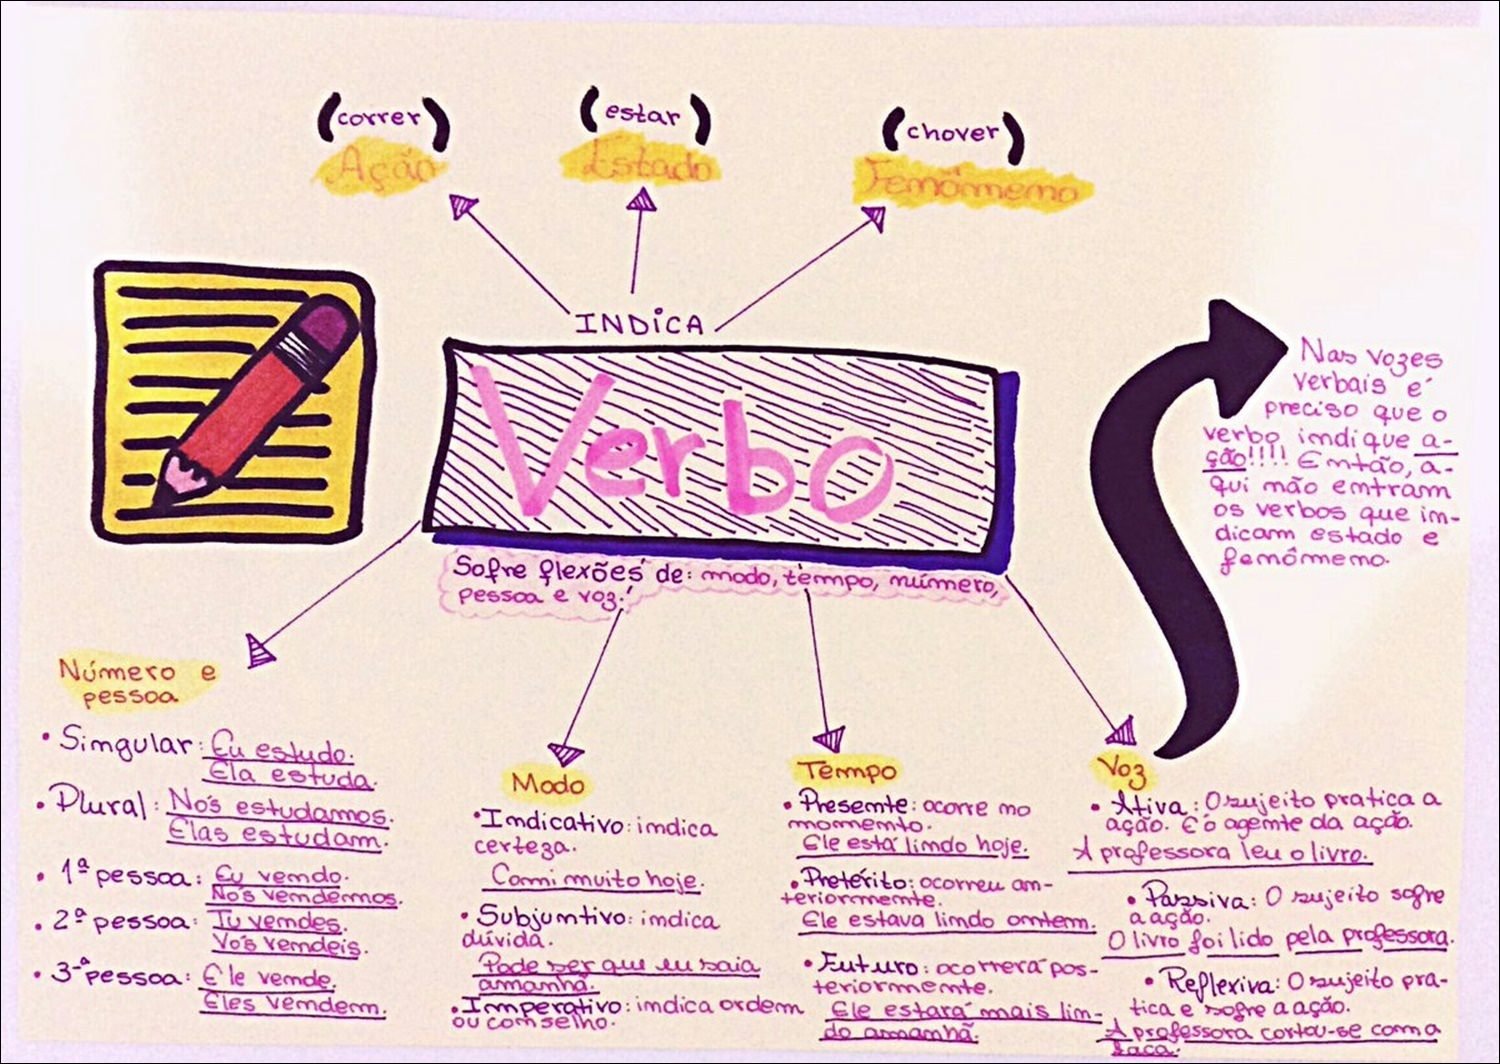 (correr)
Ação
(estar)
Estado
(chover)
Fenômeno
INDICA
Verbo
Sofre flexões de: modo, tempo, número,
pessoa e voz!
Nas vozes
verbais é
preciso que o
verbo indique a-
ção!!!! Então, a-
qui não entram
os verbos que in-
dicam estado e
fenômeno.
Número e
pessoa
• Singular: Eu estudo.
Ela estuda.
• Plural: Nós estudamos.
Elas estudam.
• 1ª pessoa: Eu vendo.
Nós vendemos.
• 2ª pessoa: Tu vendes.
Vós vendeis.
• 3ª pessoa: Ele vende.
Eles vendem.
Modo
• Indicativo: indica
certeza.
Comi muito hoje.
• Subjuntivo: indica
dúvida.
Pode ser que eu saia
amanhã.
• Imperativo: indica ordem
ou conselho.
Tempo
• Presente: ocorre no
momento.
Ele está lindo hoje.
• Pretérito: ocorreu an-
teriormente.
Ele estava lindo ontem.
• Futuro: ocorrerá pos-
teriormente.
Ele estará mais lin-
do amanhã.
Voz
• Ativa: O sujeito pratica a
ação. É o agente da ação.
A professora leu o livro.
• Passiva: O sujeito sofre
a ação.
O livro foi lido pela professora.
• Reflexiva: O sujeito pra-
tica e sofre a ação.
A professora cortou-se com a
faca.